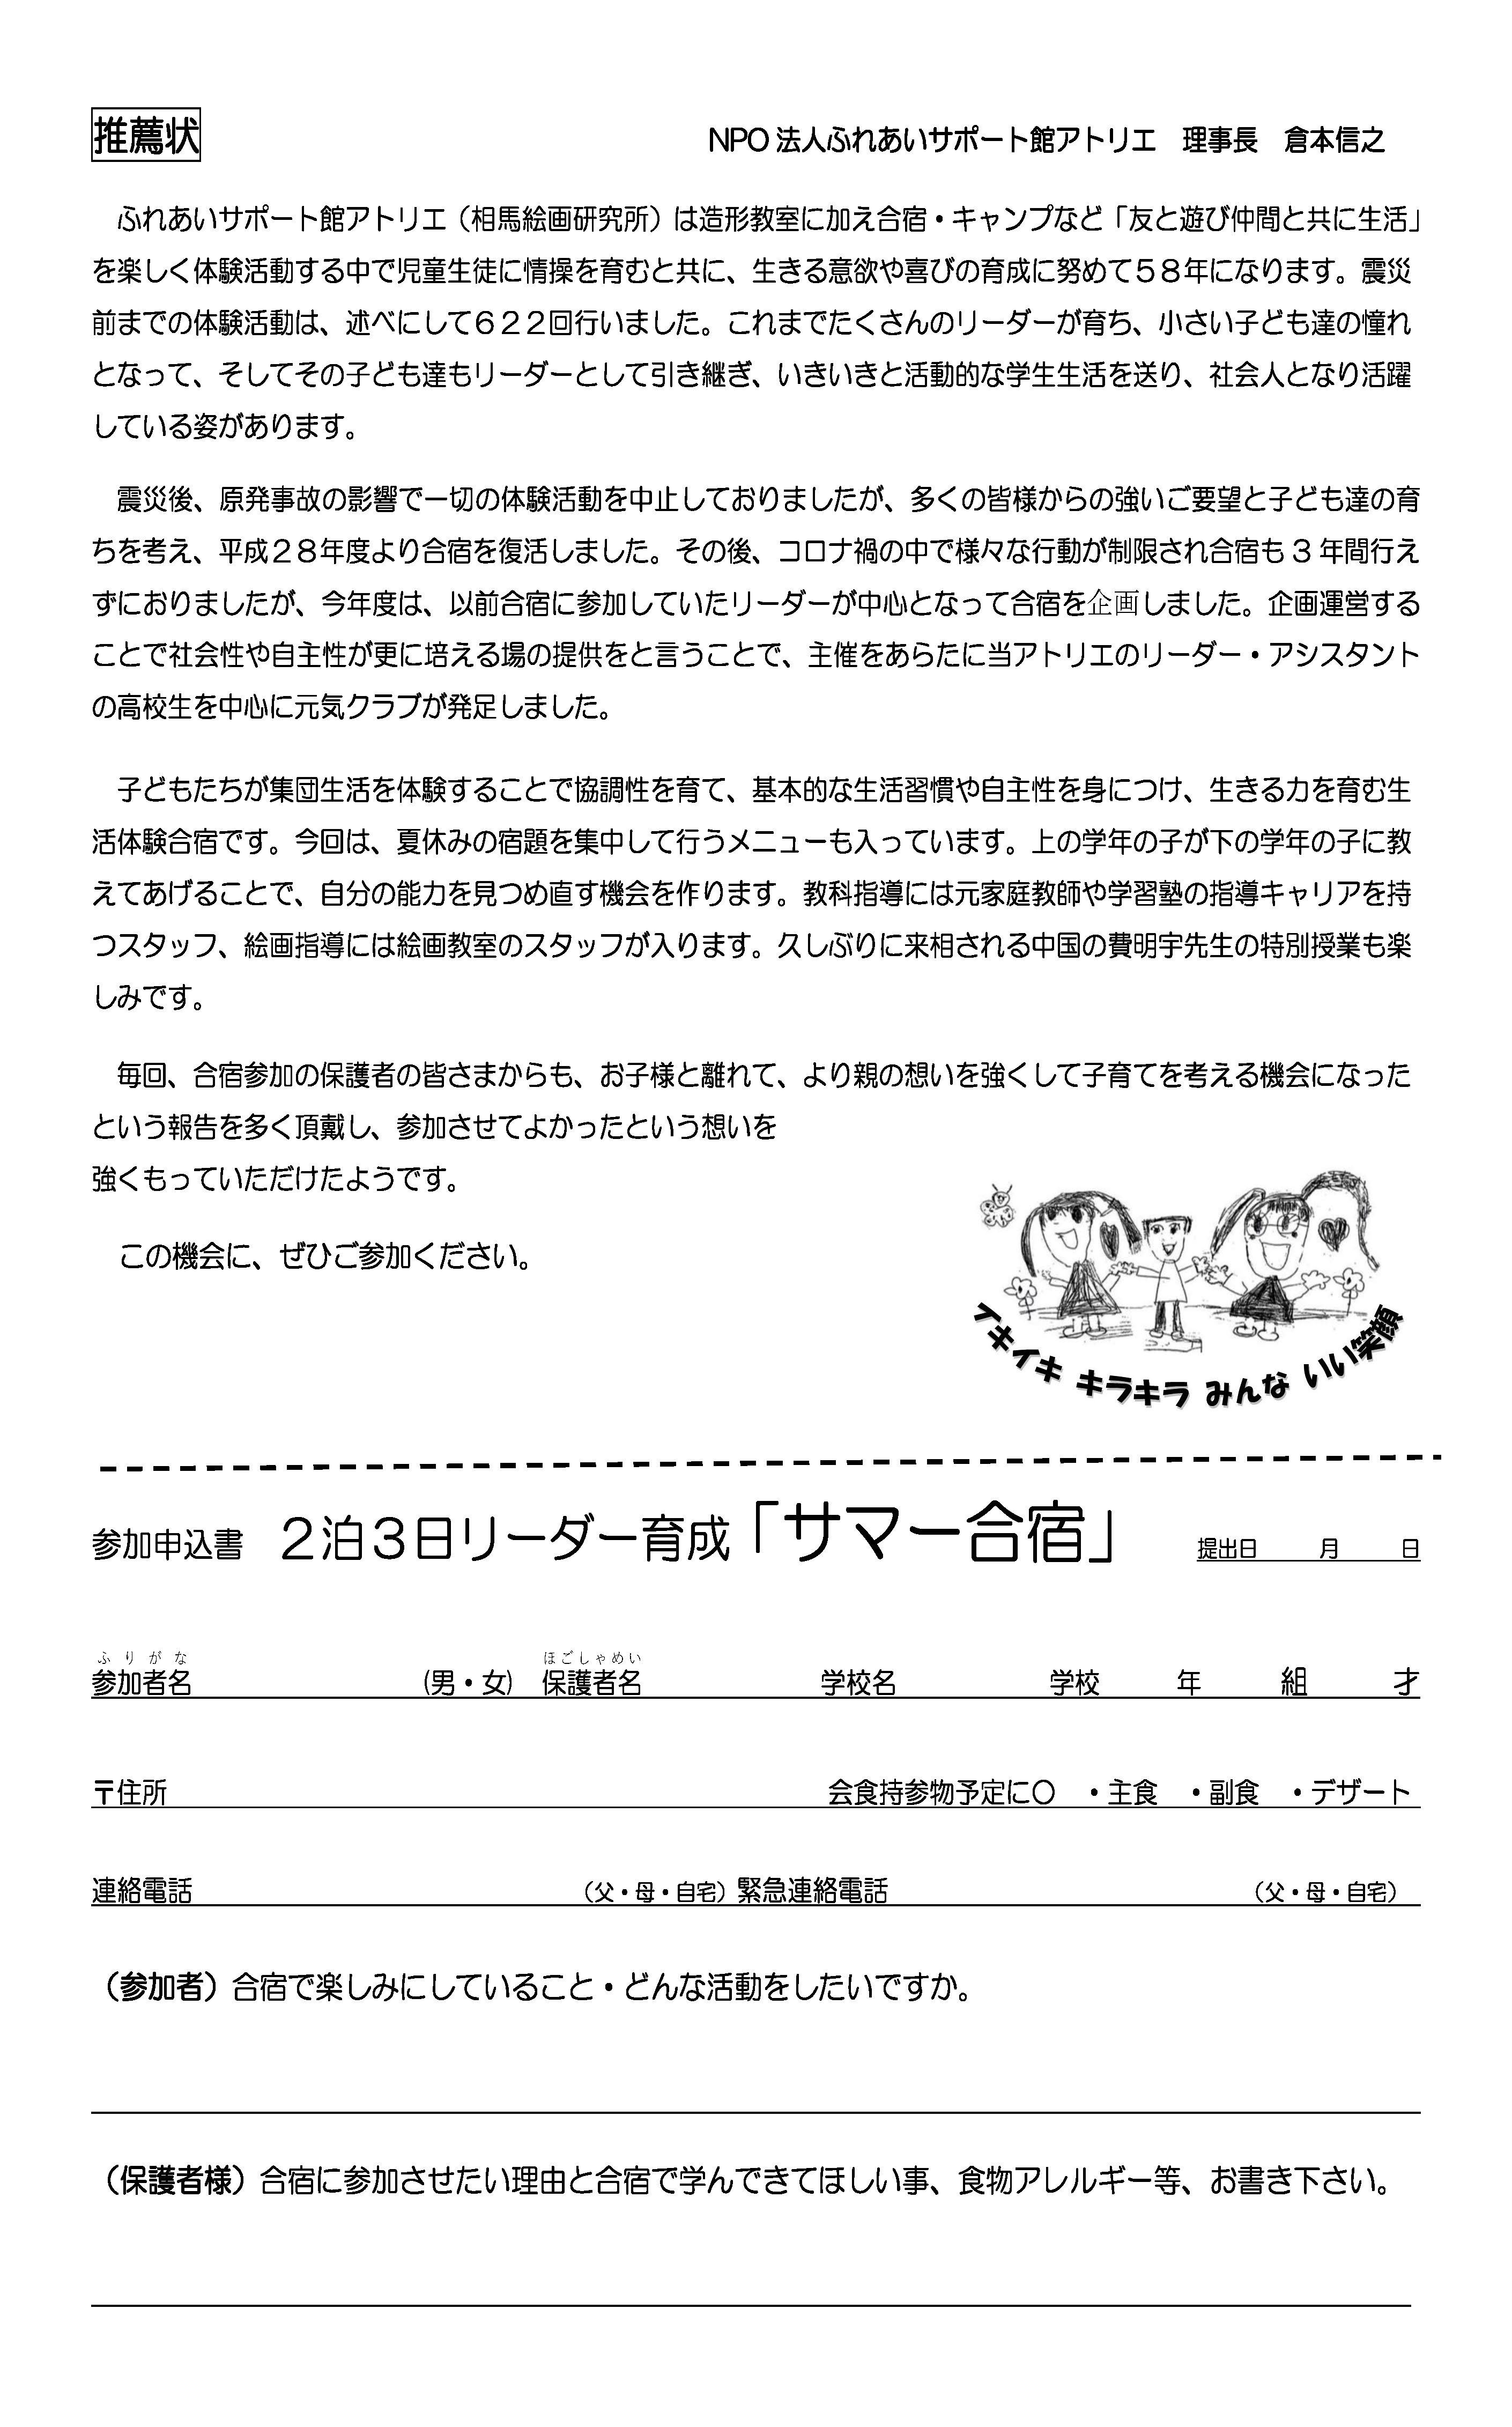 推薦状
NPO 法人ふれあいサポート館アトリエ　理事長　倉本信之
ふれあいサポート館アトリエ（相馬絵画研究所）は造形教室に加え合宿・キャンプなど「友と遊び仲間と共に生活」
を楽しく体験活動する中で児童生徒に情操を育むと共に、生きる意欲や喜びの育成に努めて５８年になります。震災
前までの体験活動は、述べにして６２２回行いました。これまでたくさんのリーダーが育ち、小さい子ども達の憧れ
となって、そしてその子ども達もリーダーとして引き継ぎ、いきいきと活動的な学生生活を送り、社会人となり活躍
している姿があります。
震災後、原発事故の影響で一切の体験活動を中止しておりましたが、多くの皆様からの強いご要望と子ども達の育
ちを考え、平成２８年度より合宿を復活しました。その後、コロナ禍の中で様々な行動が制限され合宿も 3 年間行え
ずにおりましたが、今年度は、以前合宿に参加していたリーダーが中心となって合宿を企画しました。企画運営する
ことで社会性や自主性が更に培える場の提供をと言うことで、主催をあらたに当アトリエのリーダー・アシスタント
の高校生を中心に元気クラブが発足しました。
子どもたちが集団生活を体験することで協調性を育て、基本的な生活習慣や自主性を身につけ、生きる力を育む生
活体験合宿です。今回は、夏休みの宿題を集中して行うメニューも入っています。上の学年の子が下の学年の子に教
えてあげることで、自分の能力を見つめ直す機会を作ります。教科指導には元家庭教師や学習塾の指導キャリアを持
つスタッフ、絵画指導には絵画教室のスタッフが入ります。久しぶりに来相される中国の費明宇先生の特別授業も楽
しみです。
毎回、合宿参加の保護者の皆さまからも、お子様と離れて、より親の想いを強くして子育てを考える機会になった
という報告を多く頂戴し、参加させてよかったという想いを
強くもっていただけたようです。
この機会に、ぜひご参加ください。
イキイキ キラキラ みんな いい笑顔
参加申込書　２泊３日リーダー育成「サマー合宿」　提出日　　月　　日
ふりがな　ほごしゃめい
参加者名　（男・女）　保護者名　学校名　学校　年　組　才
〒住所　会食持参物予定に〇　・主食　・副食　・デザート
連絡電話　（父・母・自宅）緊急連絡電話　（父・母・自宅）
（参加者）合宿で楽しみにしていること・どんな活動をしたいですか。
（保護者様）合宿に参加させたい理由と合宿で学んできてほしい事、食物アレルギー等、お書き下さい。